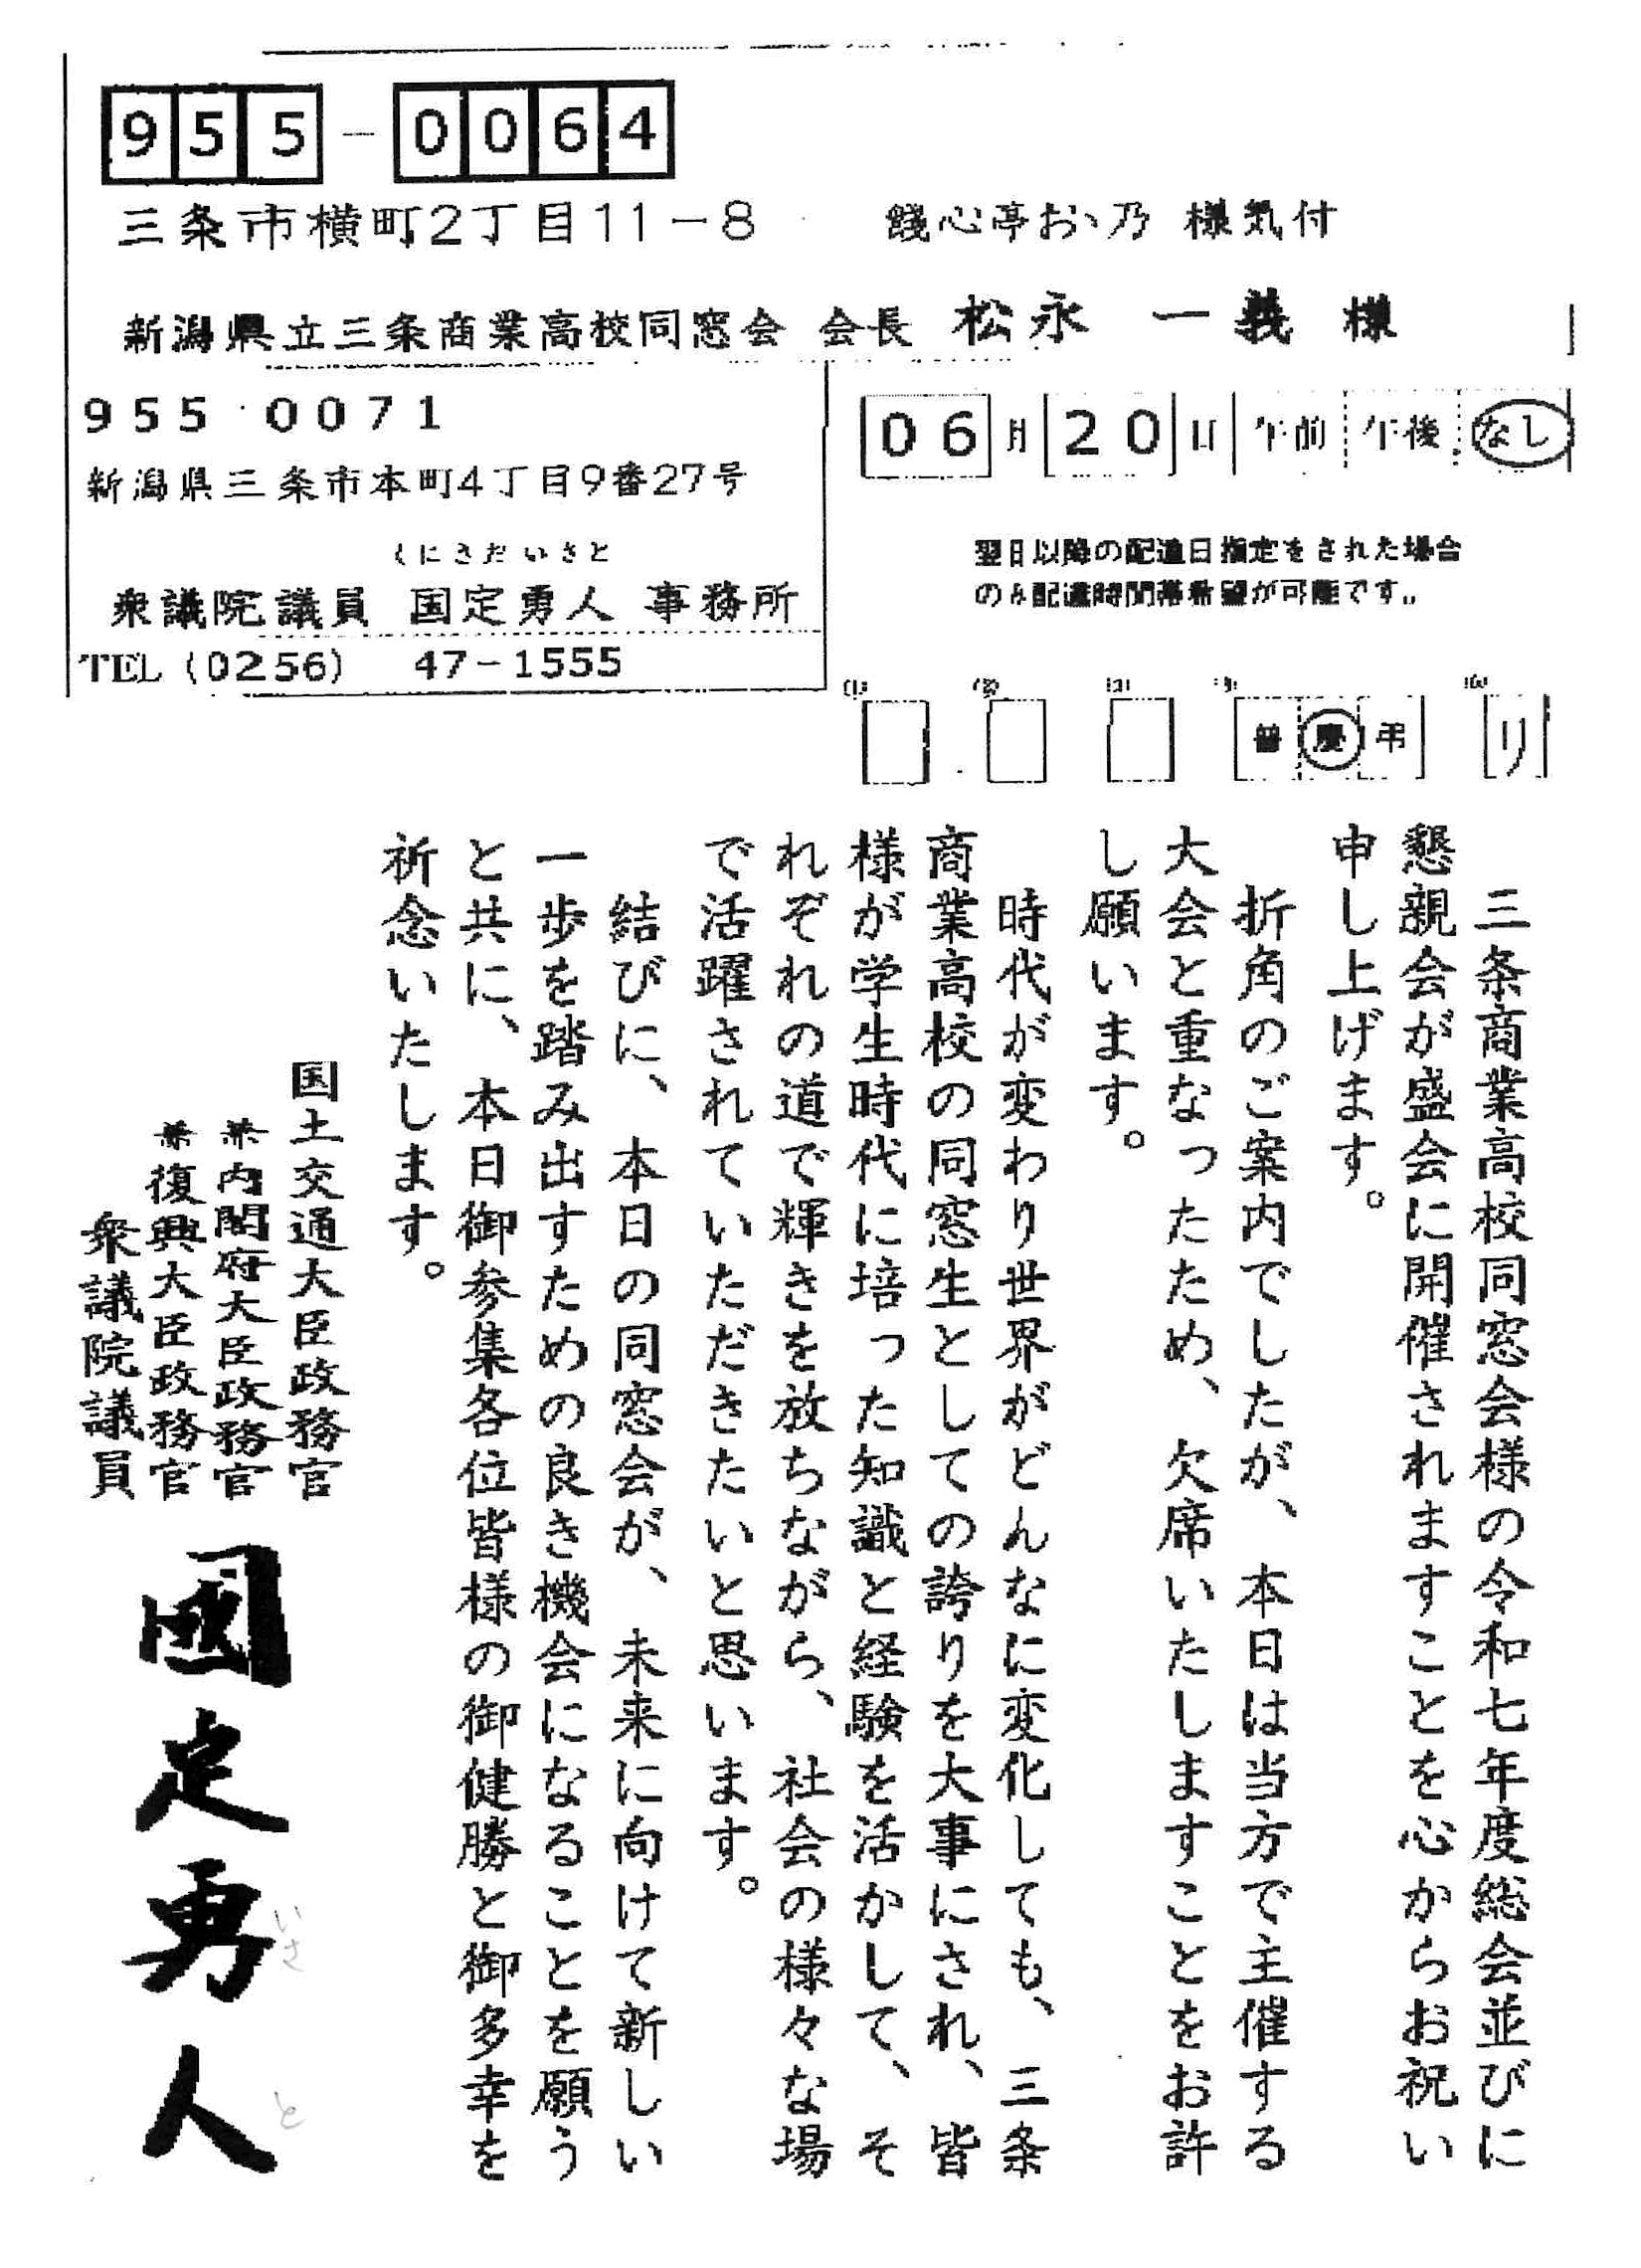 955-0064
三条市横町2丁目11-8 餞心亭おゝ乃 様気付
新潟県立三条商業高校同窓会 会長 松永 一義 様
955 0071
新潟県三条市本町4丁目9番27号
くにさだいさと
衆議院議員 国定勇人 事務所
TEL (0256) 47-1555
06月20日 午前 午後 なし
翌日以降の配達日指定をされた場合
のみ配達時間帯希望が可能です。
普 慶 弔 リ
三条商業高校同窓会様の令和七年度総会並びに
懇親会が盛会に開催されますことを心からお祝い
申し上げます。
折角のご案内でしたが、本日は当方で主催する
大会と重なったため、欠席いたしますことをお許
し願います。
時代が変わり世界がどんなに変化しても、三条
商業高校の同窓生としての誇りを大事にされ、皆
様が学生時代に培った知識と経験を活かして、そ
れぞれの道で輝きを放ちながら、社会の様々な場
で活躍されていただきたいと思います。
結びに、本日の同窓会が、未来に向けて新しい
一歩を踏み出すための良き機会になることを願う
と共に、本日御参集各位皆様の御健勝と御多幸を
祈念いたします。
国土交通大臣政務官
兼内閣府大臣政務官
兼復興大臣政務官
衆議院議員
國定勇人
いさ
と